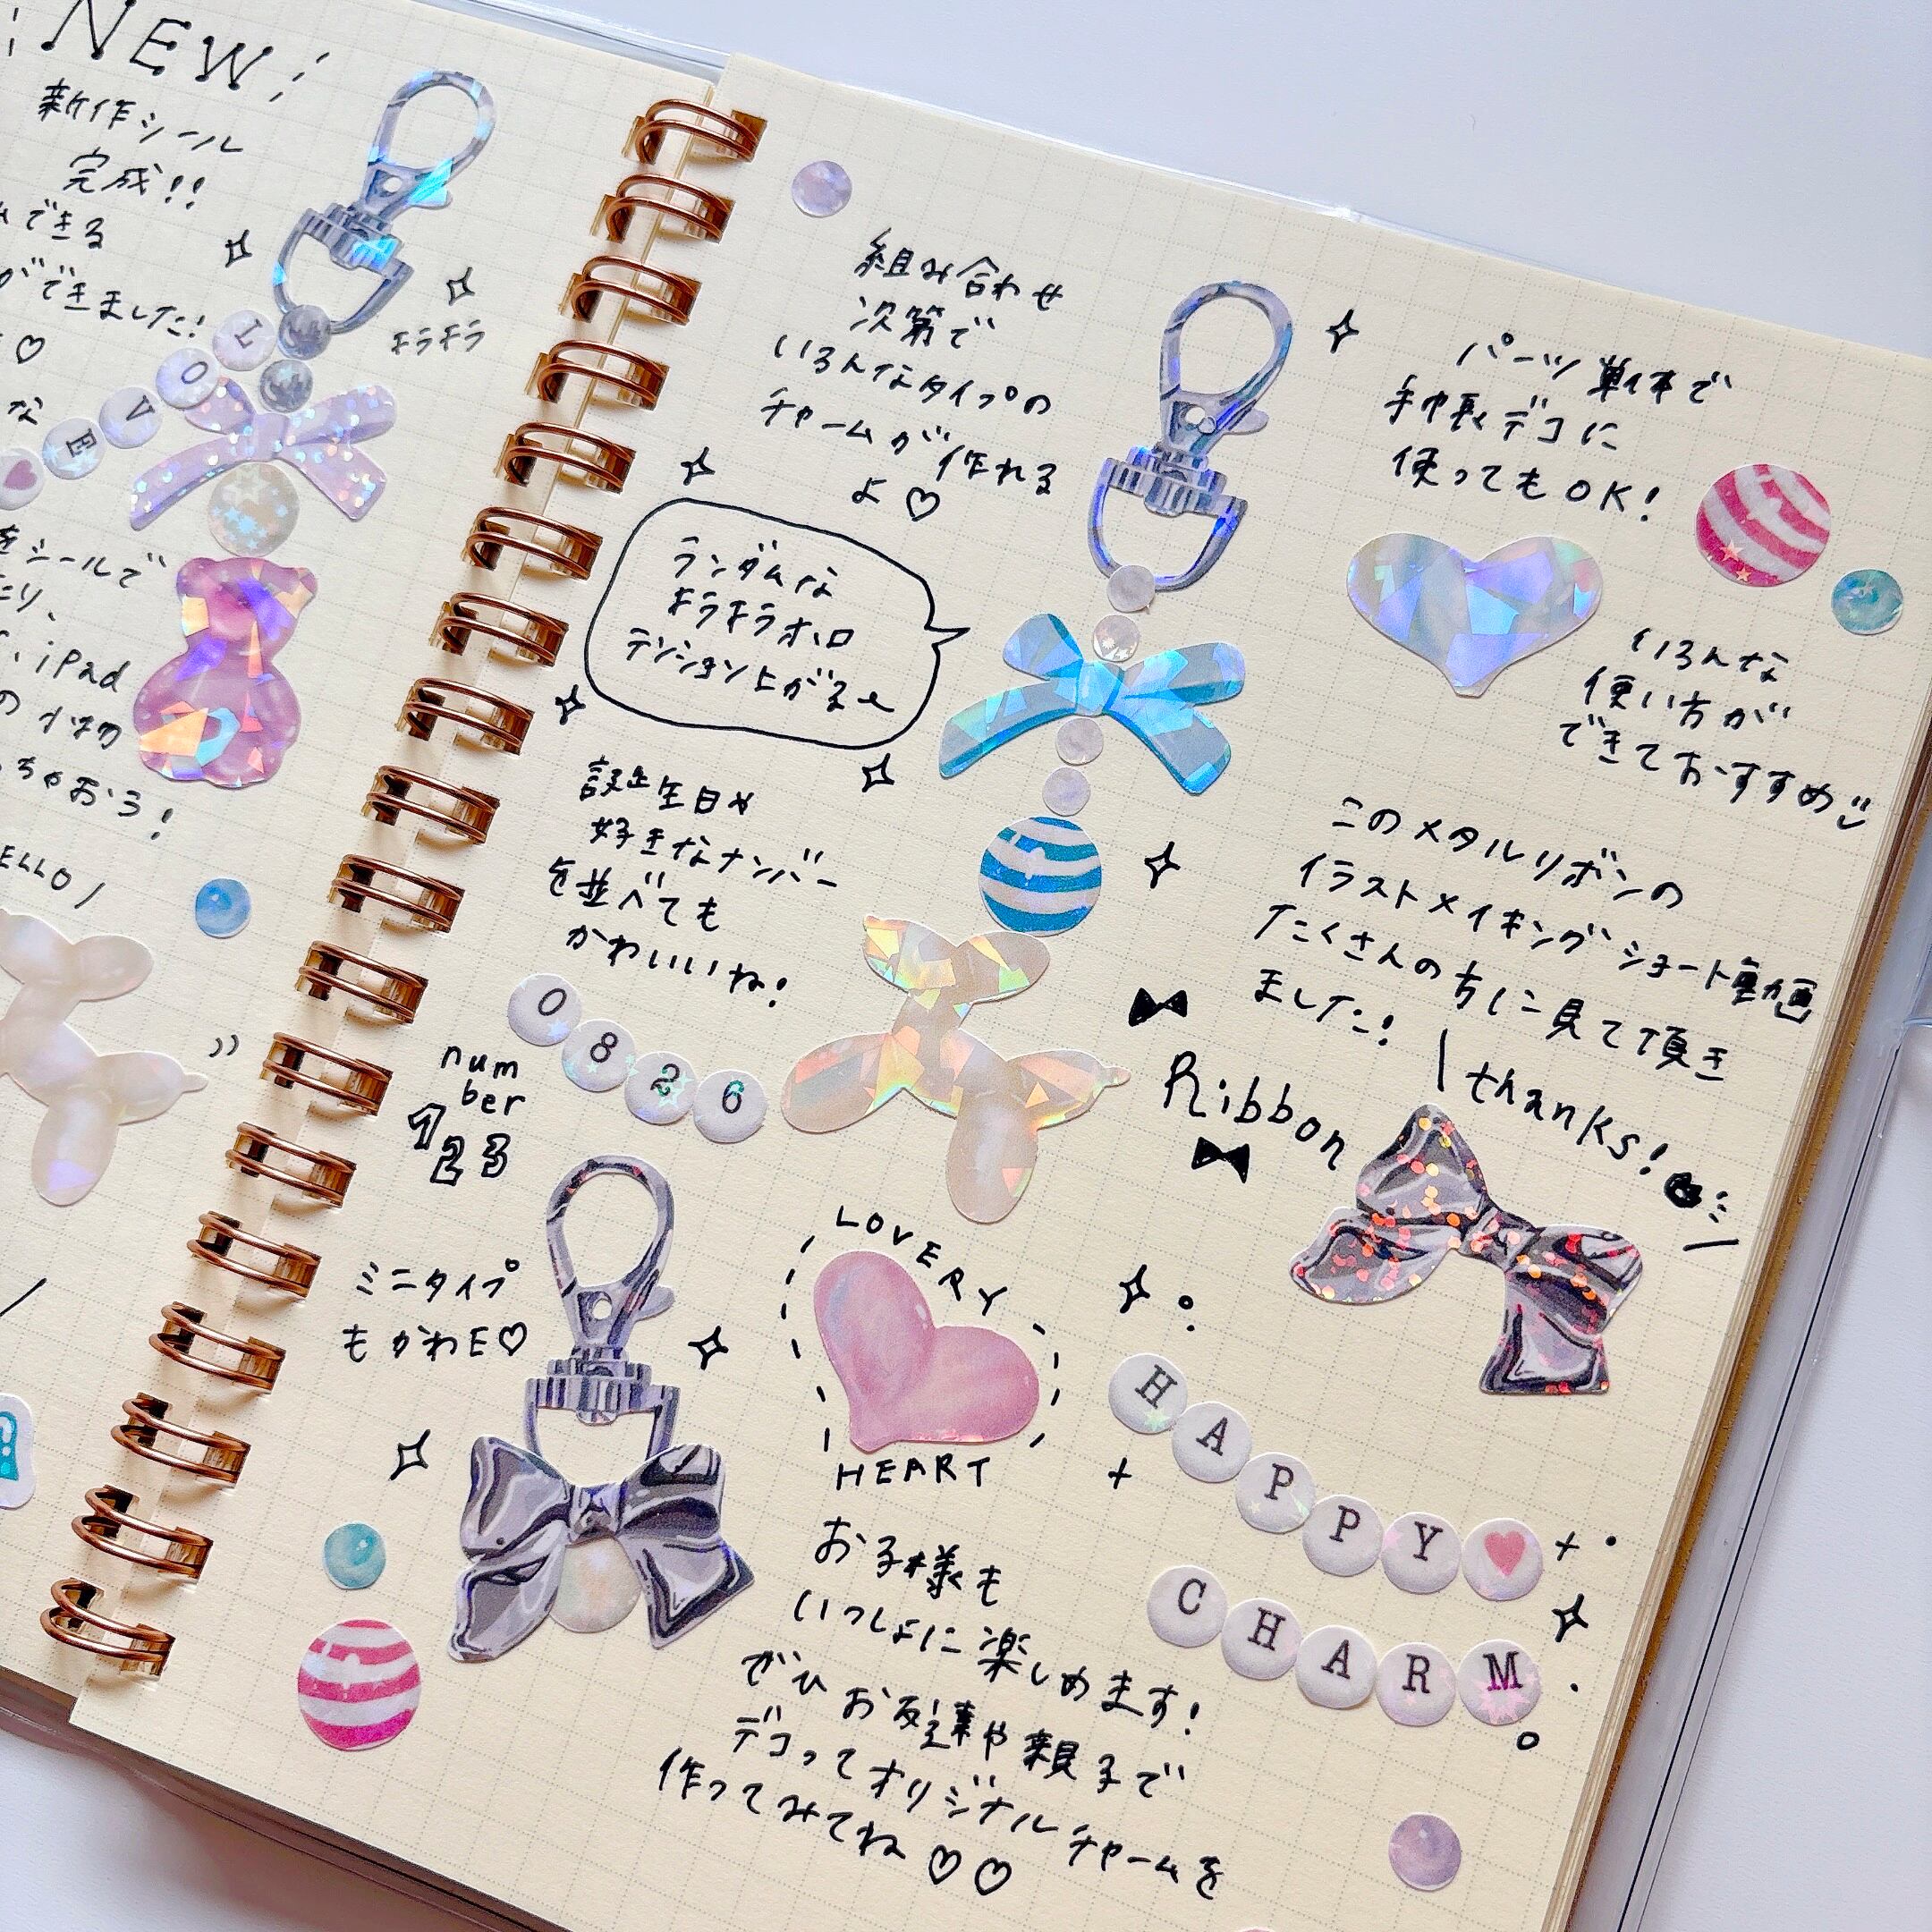 NEW
新作シール
完成!!
できる
ができました!
♡
キラキラ
LOVE
な
をシールで
iPad
の小物
ちゃおう!
HELLO
組み合わせ
次第で
いろんなタイプの
チャームが作れる
よ♡
ランダムな
キラキラホロ
テンション上がる〜
誕生日や
好きなナンバー
を並べても
かわいいね!
0826
num
ber
123
ミニタイプ
もかわE♡
LOVERY
HEART
お子様も
いっしょに楽しめます!
ぜひお友達や親子で
デコってオリジナルチャームを
作ってみてね♡♡
パーツ単体で
手帳デコに
使ってもOK!
いろんな
使い方が
できておすすめ
このメタルリボンの
イラストメイキングショート動画
たくさんの方に見て頂き
ました!
thanks!
Ribbon
HAPPY
CHARM